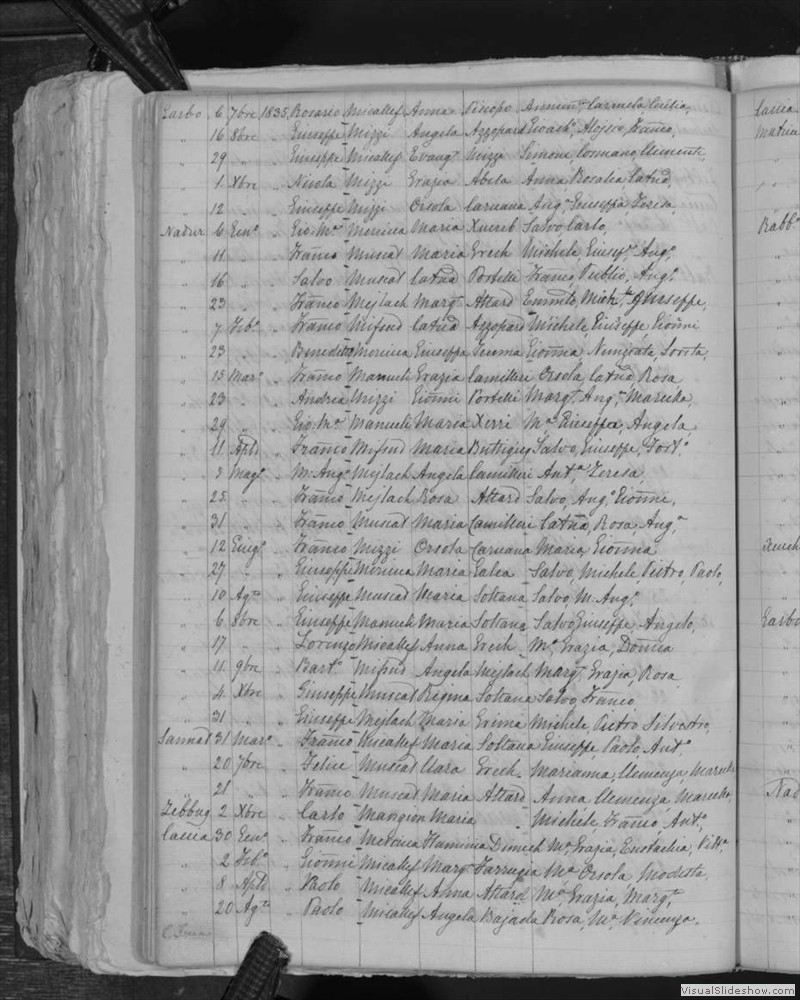 Garbo 6 7bre 1835 Rosario Micallef Anna Piscopo Annun.ta Carmela Cecilia,
" 16 8bre " Giuseppe Mizzi Angela Azzopard Aloisio, Franco,
" 29 " " Giuseppe Micallef Evang.ta Mizzi Simone, Cosmano, Clemente,
" 1 Xbre " Nicola Mizzi Grazia Abela Anna, Rosalea, Catna,
" 12 " " Giuseppe Mizzi Orsola Caruana Ang.a, Giuseppa, Teresa,
Nadur 6 Gen.o " Gio M.a Menina Maria Xuereb Salvo, Carlo,
" 11 " " Franco Muscat Maria Grech Michele, Giusep.e, Ang.o,
" 16 " " Salvo Muscat Catna Portelli Franco, Publio, Ang.o
" 23 " " Franco Mejlach Marg.ta Attard Giuseppe,
" 7 Feb.o " Franco Mifsud Catna Azzopard Michele, Giuseppe, Gionni
" 23 " " Benedetto Menina Giuseppa Gionna, Nunziata,
" 15 Mar.o " Franco Manueli Grazia Camilleri Orsola, Catna, Rosa
" 23 " " Andrea Mizzi Gionni Portelli Marg.ta, Ang.a, Mareeha,
" 29 " " Gio M.a Manueli Maria Xerri M.a Giuseppa, Angela,
" 11 Aple " Franco Mifsud Maria Buttigieg Salvo, Giuseppe, Fort.o
" 5 Mag.o " M. Ang.o Mejlach Angela Camilleri Ant.a Teresa,
" 25 " " Franco Mejlach Rosa Attard Salvo, Ang.o Gionni,
" 31 " " Franco Muscat Maria Camilleri Catna, Rosa, Ang.a
" 12 Giug.o " Franco Mizzi Orsola Caruana Maria, Gionna
" 27 " " Giuseppe Menina Maria Galea Salvo, Michele, Pietro, Paolo,
" 10 Ag.to " Giuseppe Muscat Maria Soltana Salvo, M. Ang.o
" 6 8bre " Giuseppe Manueli Maria Soltana Salvo, Giuseppe, Angelo,
" 17 " " Lorenzo Micallef Anna Grech M.a Grazia,
" 11 9bre " Bart.o Mifsud Angela Mejlach Marg.ta, Grazia, Rosa
" 4 Xbre " Giuseppe Muscat Regina Soltana Salvo, Franco,
" 31 " " Giuseppe Mejlach Maria Grima Michele, Pietro, Silvestro,
Sannat 31 Mar.o " Franco Micallef Maria Soltana Giuseppe, Paolo, Ant.o
" 20 7bre " Felice Muscat Clara Grech Marianna, Clemenza, Mareeha
" 21 " " Franco Muscat Maria Attard Anna, Clemenza, Mareeha,
Zebbug 2 Xbre " Carlo Mangion Maria " Michele, Franco, Ant.o
Caccia 30 Gen.o " Franco Flaminia Dimech M.a Grazia, Eustachia, Vitt.a
" 2 Feb.o " Gionni Micallef Marg.ta Farrugia M.a Orsola, Modesta,
" 8 Aple " Paolo Micallef Anna Attard M.a Grazia, Marg.ta
" 20 Ag.to " Paolo Micallef Angela Bajada Rosa, M.a Vincenza,
Caccia
Rabb.o
Garbo
Nad
VisualSlideshow.com